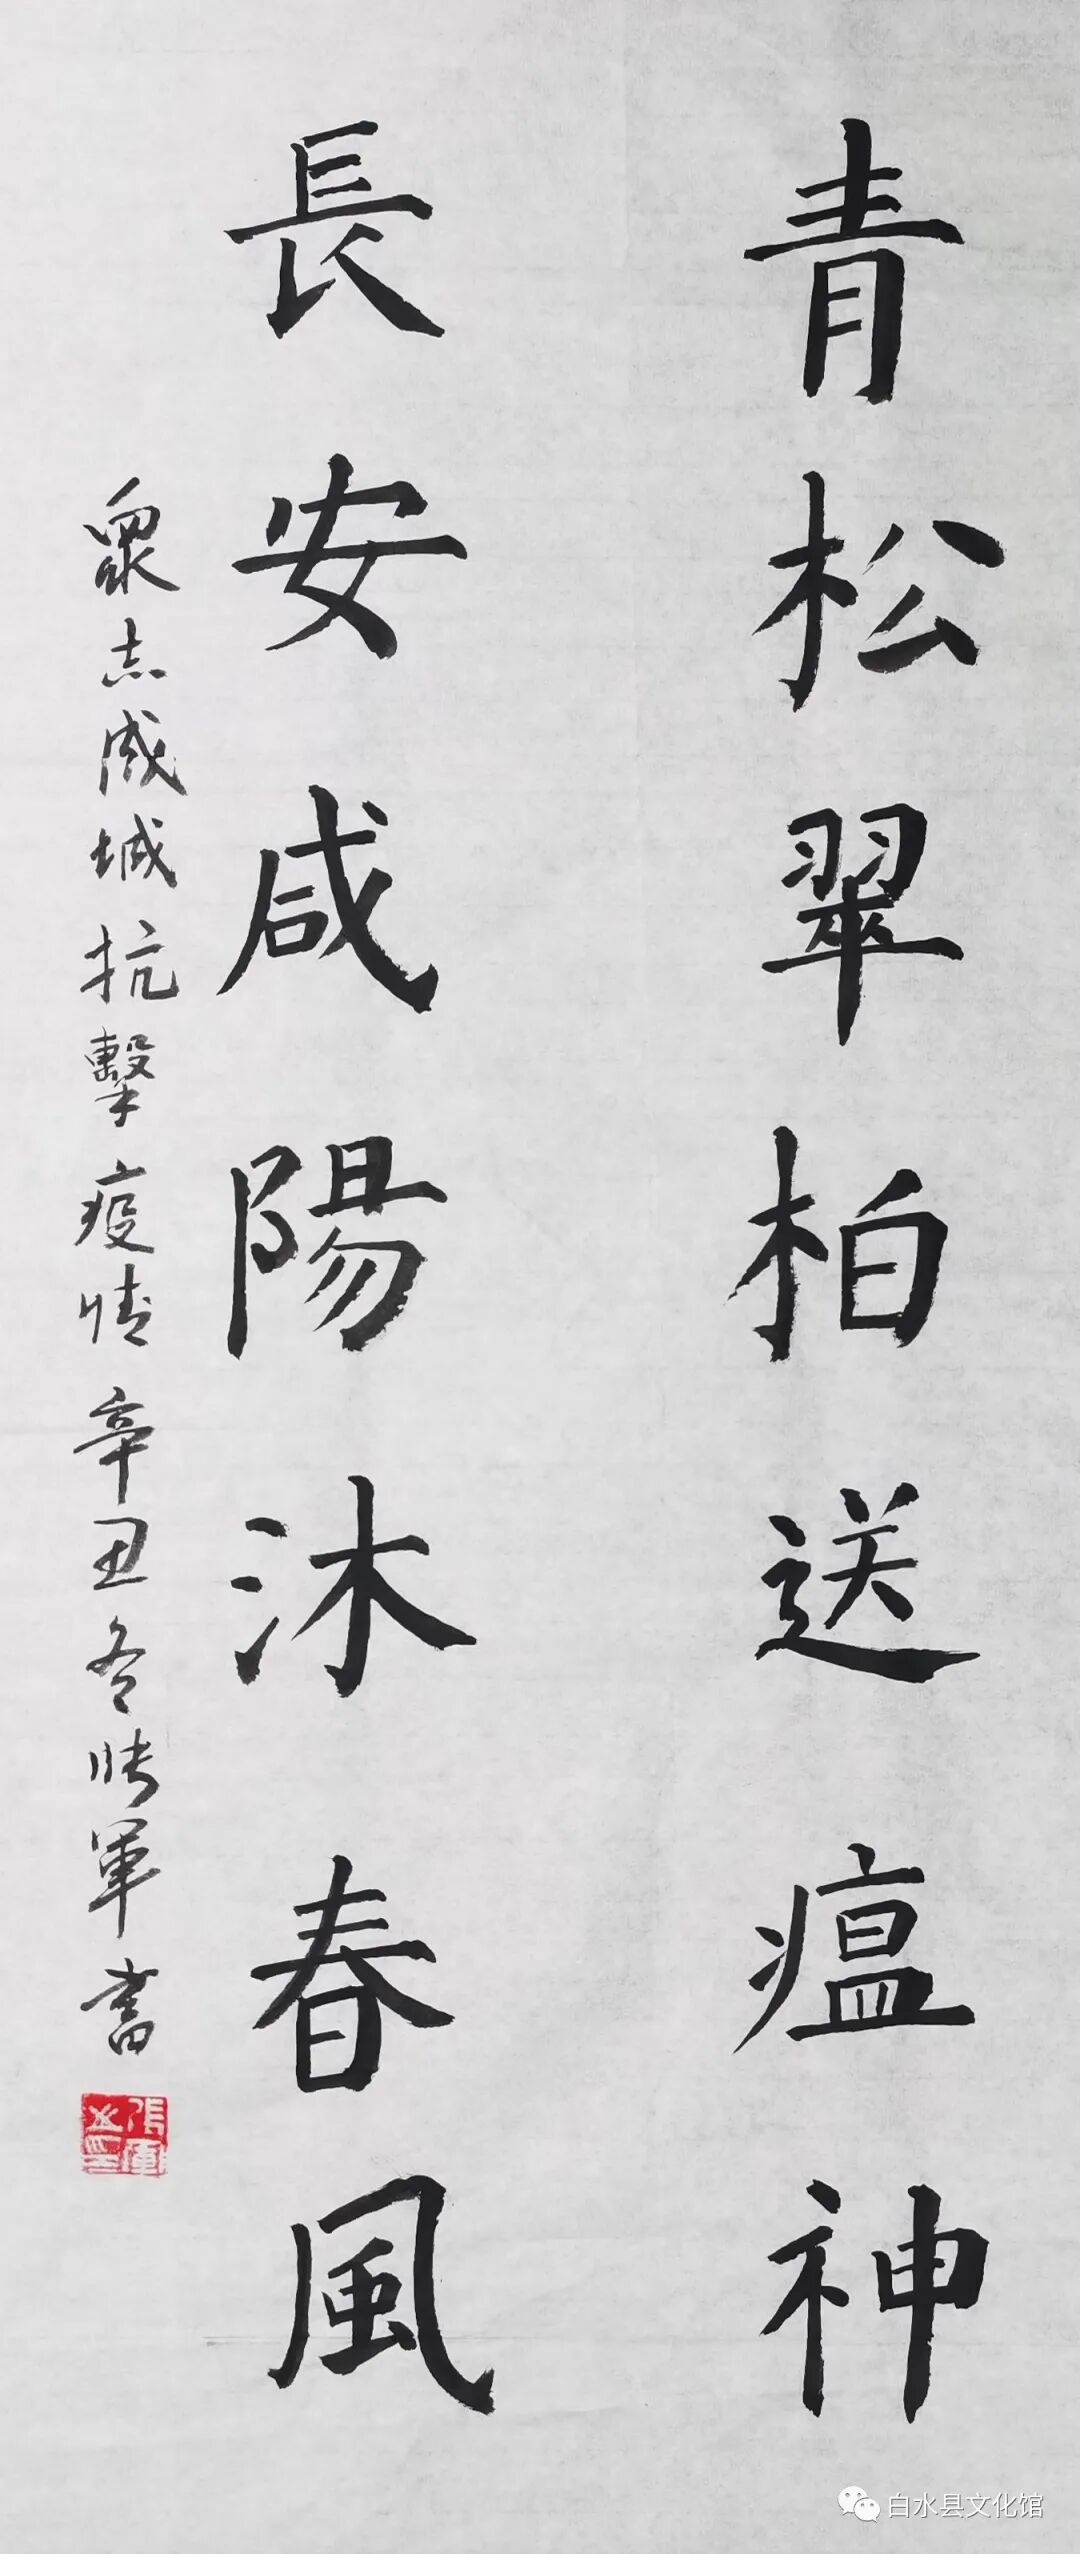 青松翠柏送瘟神
長安咸陽沐春風
衆志成城抗擊疫情辛丑冬張軍書
白水县文化馆